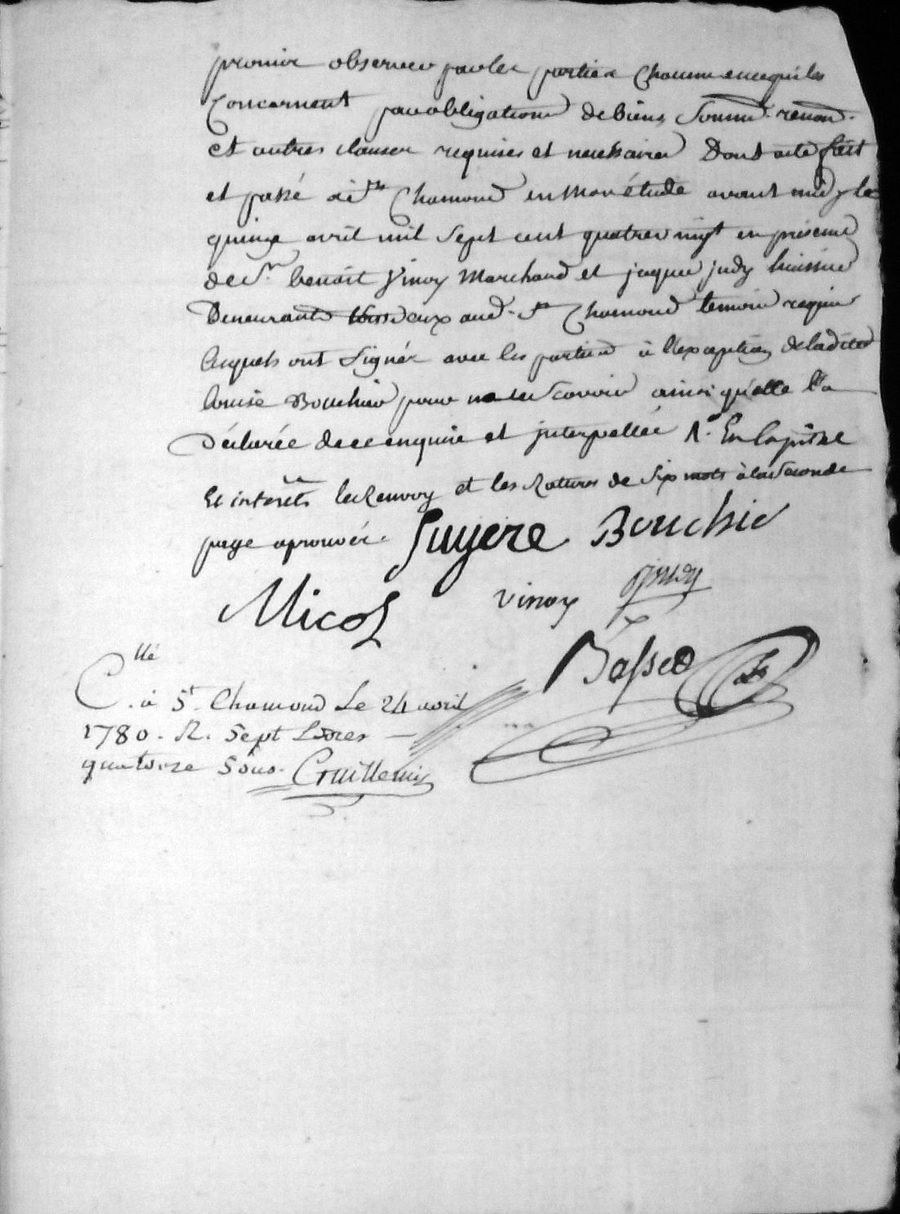 promir observer par les parties Chacune en ce qui les
Concernent par obligation de biens Soum.on renon.on
et autres clauses requises et necessaires Dont acte fait
et passé a St Chamond en mon étude avant midy le
quinze avril mil Sept cent quatrevingt en présence
de Sr. benoit Vinoy Marchand et jaque judy huissier
Demeurants tous deux aud. St Chamond temoins requis
lesquels ont Signés avec les parties à l'exception de ladite
louise Bouchir pour ne le scavoir ainsi qu'elle l'a
déclarée de ce enquise et interpellée R. En Capital
Et interêts le Renvoy et les Ratures de Six mots à la Seconde
page aprouvés. Guyere Bouchir
Micol Vinoy Judy
Basset
C.llé à St. Chamond Le 24 avril
1780. R. Sept Livres
quatorze Sous. Guillemin